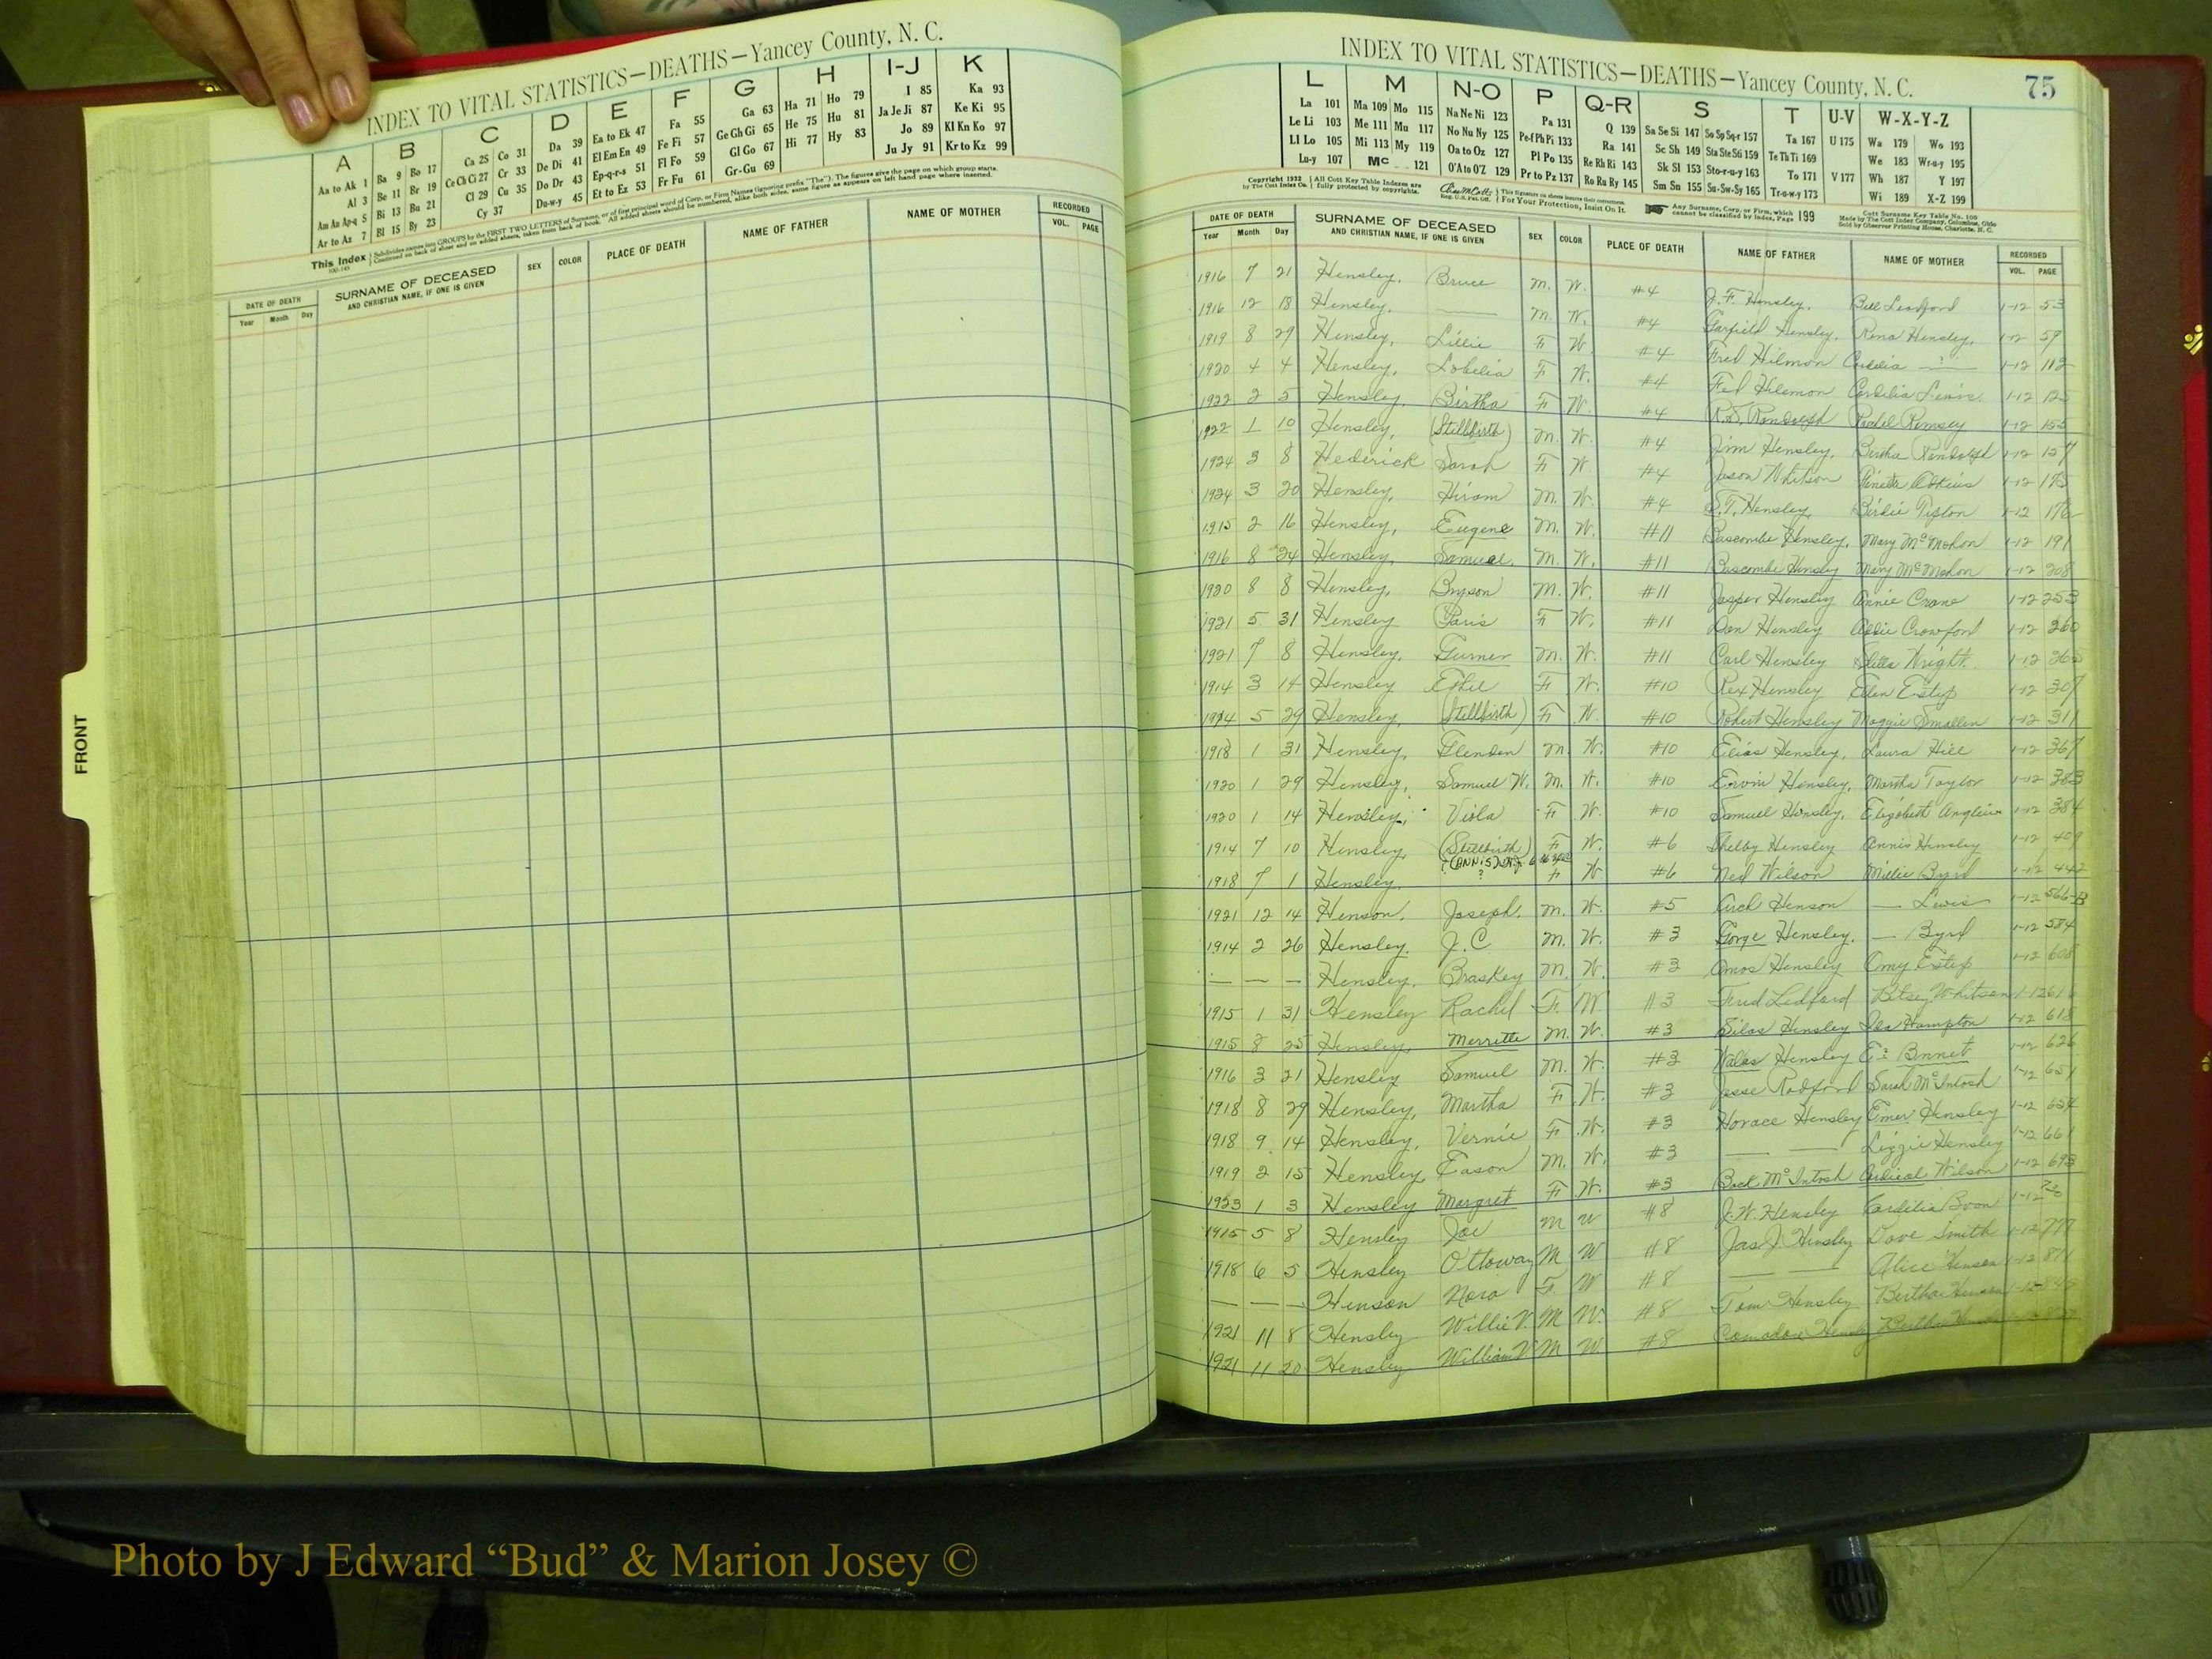 INDEX TO VITAL STATISTICS—DEATHS—Yancey County, N. C.
A B C D E F G H I-J K
Aa to Ak 1 Ba 9 Bo 17 Ca 25 Co 31 Da 39 Ea to Ek 47 Fa 55 Ga 63 Ha 71 Ho 79 I 85 Ka 93
Al 3 Be 11 Br 19 Ce Ch Ci 27 Cr 33 De Di 41 El Em En 49 Fe Fi 57 Ge Gh Gi 65 He 75 Hu 81 Ja Je Ji 87 Ke Ki 95
Am An Ap-q 5 Bi 13 Bu 21 Cl 29 Cu 35 Do Dr 43 Ep-q-r-s 51 Fl Fo 59 Gl Go 67 Hi 77 Hy 83 Jo 89 Kl Kn Ko 97
Ar to Az 7 Bl 15 By 23 Cy 37 Du-w-y 45 Et to Ez 53 Fr Fu 61 Gr-Gu 69 Ju Jy 91 Kr to Kz 99
This Index Subdivides names into GROUPS by the FIRST TWO LETTERS of Surname, or of first principal word of Corp. or Firm Names (ignoring prefix "The"). The figures give the page on which group starts.
Continued on back of sheet and on added sheets, taken from back of book. All added sheets should be numbered, alike both sides, same figure as appears on left hand page where inserted.
DATE OF DEATH SURNAME OF DECEASED SEX COLOR PLACE OF DEATH NAME OF FATHER NAME OF MOTHER RECORDED
Year Month Day AND CHRISTIAN NAME, IF ONE IS GIVEN VOL. PAGE
FRONT
INDEX TO VITAL STATISTICS—DEATHS—Yancey County, N. C. 75
L M N-O P Q-R S T U-V W-X-Y-Z
La 101 Ma 109 Mo 115 Na Ne Ni 123 Pa 131 Q 139 Sa Se Si 147 So Sp Sq-r 157 Ta 167 U 175 Wa 179 Wo 193
Le Li 103 Me 111 Mu 117 No Nu Ny 125 Pe-f Ph Pi 133 Ra 141 Sc Sh 149 Sta Ste Sti 159 Te Th Ti 169 We 183 Wr-u-y 195
Ll Lo 105 Mi 113 My 119 Oa to Oz 127 Pl Po 135 Re Rh Ri 143 Sk Sl 153 Sto-r-u-y 163 To 171 V 177 Wh 187 Y 197
Lu-y 107 Mc 121 O'A to O'Z 129 Pr to Pz 137 Ro Ru Ry 145 Sm Sn 155 Su-Sw-Sy 165 Tr-u-w-y 173 Wi 189 X-Z 199
Copyright 1932 by The Cott Index Co. All Cott Key Table Indexes are fully protected by copyrights. This signature on sheets insures their correctness. For Your Protection, Insist On It. Any Surname, Corp. or Firm, which cannot be classified by Index, Page 199
Cott Surname Key Table No. 100
Made by The Cott Index Company, Columbus, Ohio
Sold by Observer Printing House, Charlotte, N. C.
DATE OF DEATH SURNAME OF DECEASED SEX COLOR PLACE OF DEATH NAME OF FATHER NAME OF MOTHER RECORDED
Year Month Day AND CHRISTIAN NAME, IF ONE IS GIVEN VOL. PAGE
1916 7 21 Hensley, Bruce M. W. #4 J. F. Hensley, Bell Ledford 1-12 53
1916 12 18 Hensley, — M. W. #4 Garfield Hensley, Rena Hensley, 1-12 59
1919 8 29 Hensley, Lillie F W. #4 Fred Hilmon Cordelia — ? — 1-12 112
1920 4 4 Hensley, Lobelia F W. #4 Fed Hilemon Cordelia Lewis 1-12
1922 2 5 Hensley, Birtha F W. #4 Randolph Rachel Ramsey 1-12
1922 1 10 Hensley, (Stillbirth) M. W. #4 Jim Hensley, Bertha Randolph 1-12 157
1924 3 8 Hederick Sarah F W #4 Jason Whitson Adkins 1-12
1924 3 20 Hensley, Hiram M. W. #4 S. T. Hensley, Birdie Tipton 1-12 176
1915 2 16 Hensley, Eugene M. W. #11 Bascombe Hensley, Mary McMahon 1-12 191
1916 8 24 Hensley, Samuel, M. W. #11 Bascombe Hensley Mary McMahon 1-12 208
1920 8 8 Hensley, Bryson M. W. #11 Jasper Hensley Annie Crane 1-12 253
1921 5 31 Hensley Paris F W. #11 Dan Hensley Addie Crowford 1-12 260
1921 7 8 Hensley, Turner M. W. #11 Carl Hensley Stella Wright 1-12
1914 3 14 Hensley Effie F W. #10 Rex Hensley Ellen Estep 1-12 307
1914 5 29 Hensley, (Stillbirth) F W. #10 Robert Hensley Maggie Smallen 1-12 311
1918 1 31 Hensley, Glendon M. W. #10 Elias Hensley, Laura Hill 1-12 367
1920 1 29 Hensley, Samuel W. M. W. #10 Ervin Hensley, Martha Taylor 1-12 383
1920 1 14 Hensley, Viola F W. #10 Samuel Hensley, Elizabeth Anglin 1-12 384
1914 7 10 Hensley, (Stillbirth) F W. #6 Shelby Hensley Annis Hensley 1-12 409
(ANNIS)
1918 7 1 Hensley. ? F W #6 Ned Wilson Millie Byrd 1-12 442
1921 12 14 Henson, Joseph. M. W. #5 Arch Henson — Lewis 1-12 566-B
1914 2 26 Hensley. J. C M. W. #3 Gorge Hensley. — Byrd 1-12 584
— — — Hensley. Braskey M. W. #3 Amos Hensley Omy Estep 1-12 608
1915 1 31 Hensley Rachel F. W #3 Fred Ledford Betsey Whitson 1-12 61
1915 8 25 Hensley, Merritte M. W. #3 Silas Hensley Ida Hampton 1-12 618
1916 3 21 Hensley Samuel M. W. #3 Walas Hensley E: Bnnet 1-12 626
1918 8 29 Hensley, Martha F W. #3 Jesse Radford Sarah McIntosh 1-12 651
1918 9 14 Hensley, Vernie F W. #3 Horace Hensley Emer Hensley 1-12 654
1919 2 15 Hensley, Eason M. W. #3 — — Lizzie Hensley 1-12 661
1923 1 3 Hensley Margret F W. #3 Back McIntosh Wilson 1-12 693
1915 5 8 Hensley Joe M W #8 J. W. Hensley Cordelia Boon 1-12
1918 6 5 Hensley Ottoway M W #8 Jas J. Hensley Dove Smith 1-12 777
— — — Henson Nora F. W #8 — — Alice Henson 1-12 811
1921 11 8 Hensley Willie V. M W. #8 Tom Hensley Bertha 1-12
1921 11 20 Hensley William V M W #8 Comadore Bertha
Photo by J Edward “Bud” & Marion Josey ©